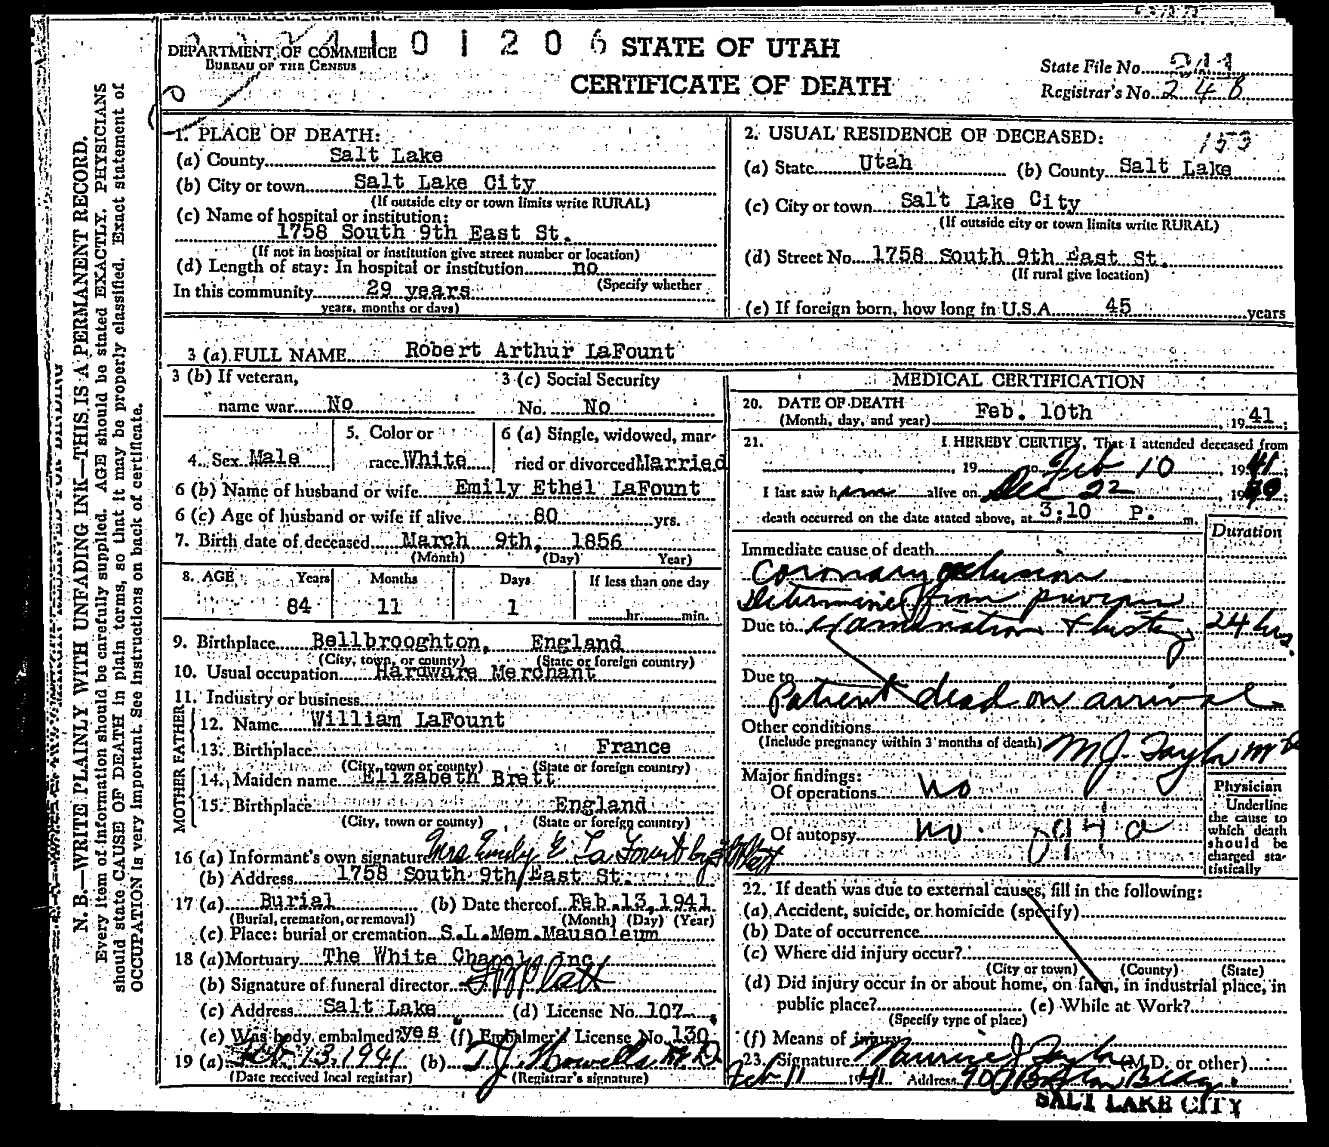 DEPARTMENT OF COMMERCE
BUREAU OF THE CENSUS
4 1 0 1 2 0 6
STATE OF UTAH
CERTIFICATE OF DEATH
State File No. 211
Registrar's No. 248
N. B.—WRITE PLAINLY WITH UNFADING INK—THIS IS A PERMANENT RECORD.
Every item of information should be carefully supplied. AGE should be stated EXACTLY. PHYSICIANS
should state CAUSE OF DEATH in plain terms, so that it may be properly classified. Exact statement of
OCCUPATION is very important. See instructions on back of certificate.
1. PLACE OF DEATH:
(a) County Salt Lake
(b) City or town Salt Lake City
(If outside city or town limits write RURAL)
(c) Name of hospital or institution:
1758 South 9th East St.
(If not in hospital or institution give street number or location)
(d) Length of stay: In hospital or institution no
(Specify whether
In this community 29 years
years, months or days)
2. USUAL RESIDENCE OF DECEASED:
153
(a) State Utah (b) County Salt Lake
(c) City or town Salt Lake City
(If outside city or town limits write RURAL)
(d) Street No. 1758 South 9th East St.
(If rural give location)
(e) If foreign born, how long in U.S.A. 45 years
3 (a) FULL NAME Robert Arthur LaFount
3 (b) If veteran,
name war No
3 (c) Social Security
No. No
4. Sex Male
5. Color or
race White
6 (a) Single, widowed, mar-
ried or divorced Married
6 (b) Name of husband or wife Emily Ethel LaFount
6 (c) Age of husband or wife if alive 80 yrs.
7. Birth date of deceased March 9th, 1856
(Month) (Day) Year)
8. AGE Years Months Days If less than one day
84 11 1 hr. min.
9. Birthplace Bellbrooghton, England
(City, town, or county) (State or foreign country)
10. Usual occupation Hardware Merchant
11. Industry or business
FATHER
12. Name William LaFount
13. Birthplace France
(City, town or county) (State or foreign country)
MOTHER
14. Maiden name Elizabeth Brett
15. Birthplace England
(City, town or county) (State or foreign country)
16 (a) Informant's own signature Mrs Emily E La Fount by
(b) Address 1758 South 9th East St.
17 (a) Burial (b) Date thereof Feb.13,1941
(Burial, cremation, or removal) (Month) (Day) (Year)
(c) Place: burial or cremation S.L.Mem.Mausoleum
18 (a) Mortuary The White Chapel Inc
(b) Signature of funeral director Platt
(c) Address Salt Lake (d) License No. 107
(e) Was body embalmed? yes (f) Embalmer's License No. 130
19 (a) Feb 13, 1941 (b) T J Howells M.D.
(Date received local registrar) (Registrar's signature)
MEDICAL CERTIFICATION
20. DATE OF DEATH
(Month, day, and year) Feb. 10th 1941;
21. I HEREBY CERTIFY, That I attended deceased from
, 19 to Feb 10, 1941
I last saw him alive on Dec 22, 1940
death occurred on the date stated above, at 3:10 P. m.
Duration
Immediate cause of death
Coronary occlusion
Determined from previous
Due to examination & history 24 hrs.
Due to
Patient dead on arrival
Other conditions
(Include pregnancy within 3 months of death) M J. Taylor MD
Major findings:
Of operations No
Of autopsy No. 094a
Physician
Underline
the cause to
which death
should be
charged sta-
tistically
22. If death was due to external causes, fill in the following:
(a) Accident, suicide, or homicide (specify)
(b) Date of occurrence
(c) Where did injury occur?
(City or town) (County) (State)
(d) Did injury occur in or about home, on farm, in industrial place, in
public place? (e) While at Work?
(Specify type of place)
(f) Means of injury
23. Signature Maurice J Taylor (M.D. or other)
Feb 11 1941 Address 900 Boston Bldg.
SALT LAKE CITY